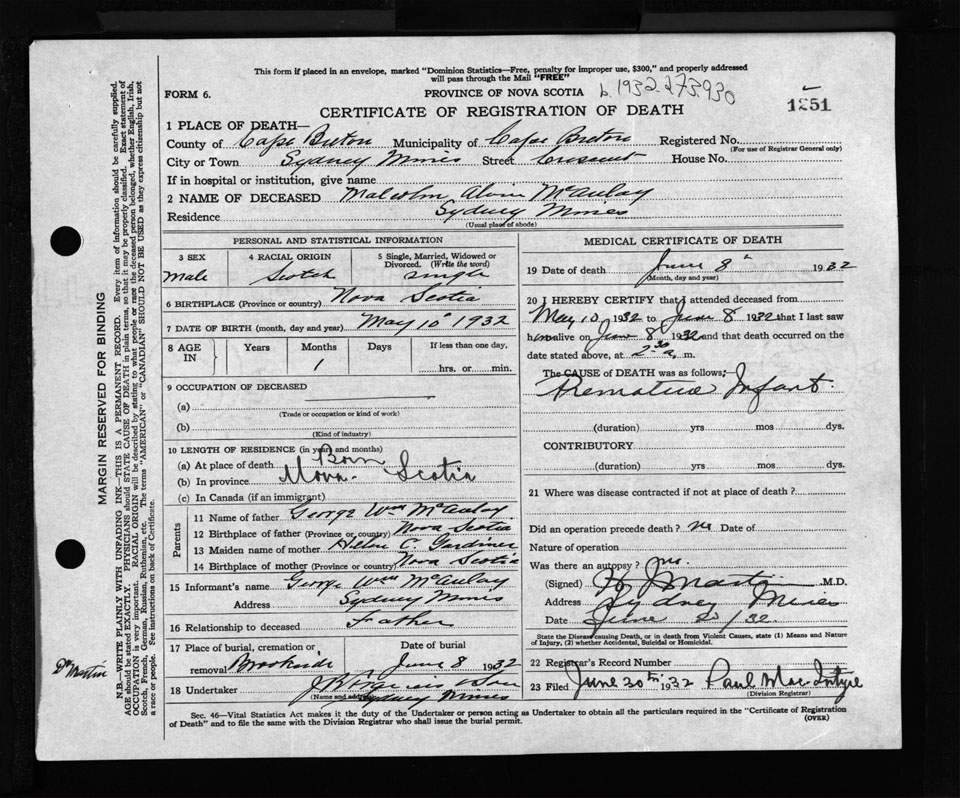 This form if placed in an envelope, marked "Dominion Statistics—Free, penalty for improper use, $300," and properly addressed
will pass through the Mail "FREE"
FORM 6. PROVINCE OF NOVA SCOTIA b. 1932 273930
CERTIFICATE OF REGISTRATION OF DEATH 1251
1 PLACE OF DEATH—
County of Cape Breton Municipality of Cape Breton Registered No.
(For use of Registrar General only)
City or Town Sydney Mines Street Crescent House No.
If in hospital or institution, give name
2 NAME OF DECEASED Malcolm Alvin McAulay
Residence Sydney Mines
(Usual place of abode)
PERSONAL AND STATISTICAL INFORMATION
3 SEX 4 RACIAL ORIGIN 5 Single, Married, Widowed or Divorced. (Write the word)
Male Scotch Single
6 BIRTHPLACE (Province or country) Nova Scotia
7 DATE OF BIRTH (month, day and year) May 10 1932
8 AGE IN Years Months Days If less than one day,
1 hrs. or min.
9 OCCUPATION OF DECEASED
(a)
(Trade or occupation or kind of work)
(b)
(Kind of industry)
10 LENGTH OF RESIDENCE (in years and months)
(a) At place of death Born
(b) In province Nova Scotia
(c) In Canada (if an immigrant)
Parents
11 Name of father George Wm McAulay
12 Birthplace of father (Province or country) Nova Scotia
13 Maiden name of mother C. Gardiner
14 Birthplace of mother (Province or country) Nova Scotia
15 Informant's name George Wm McAulay
Address Sydney Mines
16 Relationship to deceased Father
17 Place of burial, cremation, or removal Brookside Date of burial June 8 1932
18 Undertaker
(Name and address) Sydney Mines
MEDICAL CERTIFICATE OF DEATH
19 Date of death June 8 1932
(Month, day and year)
20 I HEREBY CERTIFY that I attended deceased from
May 10 1932 to June 8 1932 that I last saw
him alive on June 8 1932 and that death occurred on
date stated above, at 2.30 a. m.
The CAUSE of DEATH was as follows:
Premature Infant
(duration) yrs mos dys.
CONTRIBUTORY
(duration) yrs mos dys.
21 Where was disease contracted if not at place of death?
Did an operation precede death? no Date of
Nature of operation
Was there an autopsy? no.
(Signed) Martin M.D.
Address Sydney Mines
Date June /32.
State the Disease causing Death, or in death from Violent Causes, state (1) Means and Nature
of Injury, (2) whether Accidental, Suicidal or Homicidal.
22 Registrar's Record Number
23 Filed June 20th 1932 Paul MacIntyre
(Division Registrar)
Sec. 46—Vital Statistics Act makes it the duty of the Undertaker or person acting as Undertaker to obtain all the particulars required in the "Certificate of Registration
of Death" and to file the same with the Division Registrar who shall issue the burial permit. (OVER)
MARGIN RESERVED FOR BINDING
N.B.—WRITE PLAINLY WITH UNFADING INK—THIS IS A PERMANENT RECORD. Every item of information should be carefully supplied.
AGE should be stated EXACTLY. PHYSICIANS should STATE CAUSE OF DEATH in plain terms, so that it may be properly classified. Exact statement of
OCCUPATION is very important. RACIAL ORIGIN will be described by stating to what people or race the deceased person belonged, whether English, Irish,
Scotch, French, German, Russian, Ruthenian, etc. The terms "AMERICAN" or "CANADIAN" SHOULD NOT BE USED as they express citizenship but not
a race or people. See instructions on back of Certificate.
Dr Martin